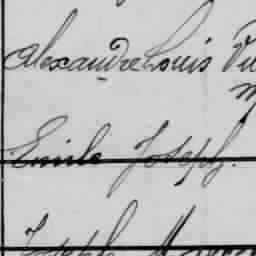 Alexandre Louis
Emile Joseph.
Joseph